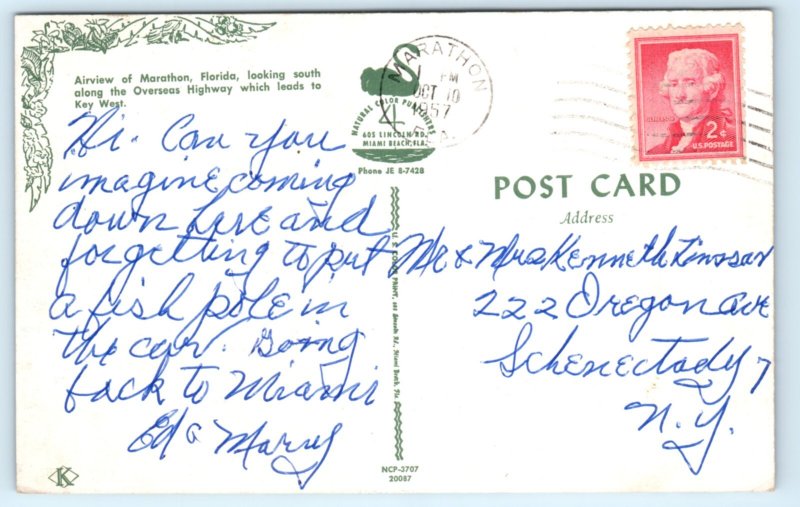 Airview of Marathon, Florida, looking south
along the Overseas Highway which leads to
Key West.
Hi. Can you
imagine coming
down here and
forgetting to put
a fish pole in
the car. Going
back to Miami
Ed & Mary
MARATHON
PM
OCT 10
1957
NATURAL COLOR
605 LINCOLN RD.
MIAMI BEACH, FLA.
Phone JE 8-7428
U. S. COLOR PRINT,
2¢
U.S. POSTAGE
POST CARD
Address
Mr & Mrs Kenneth
222 Oregon Ave
Schenectady 7
N.Y.
NCP-3707
20087
K